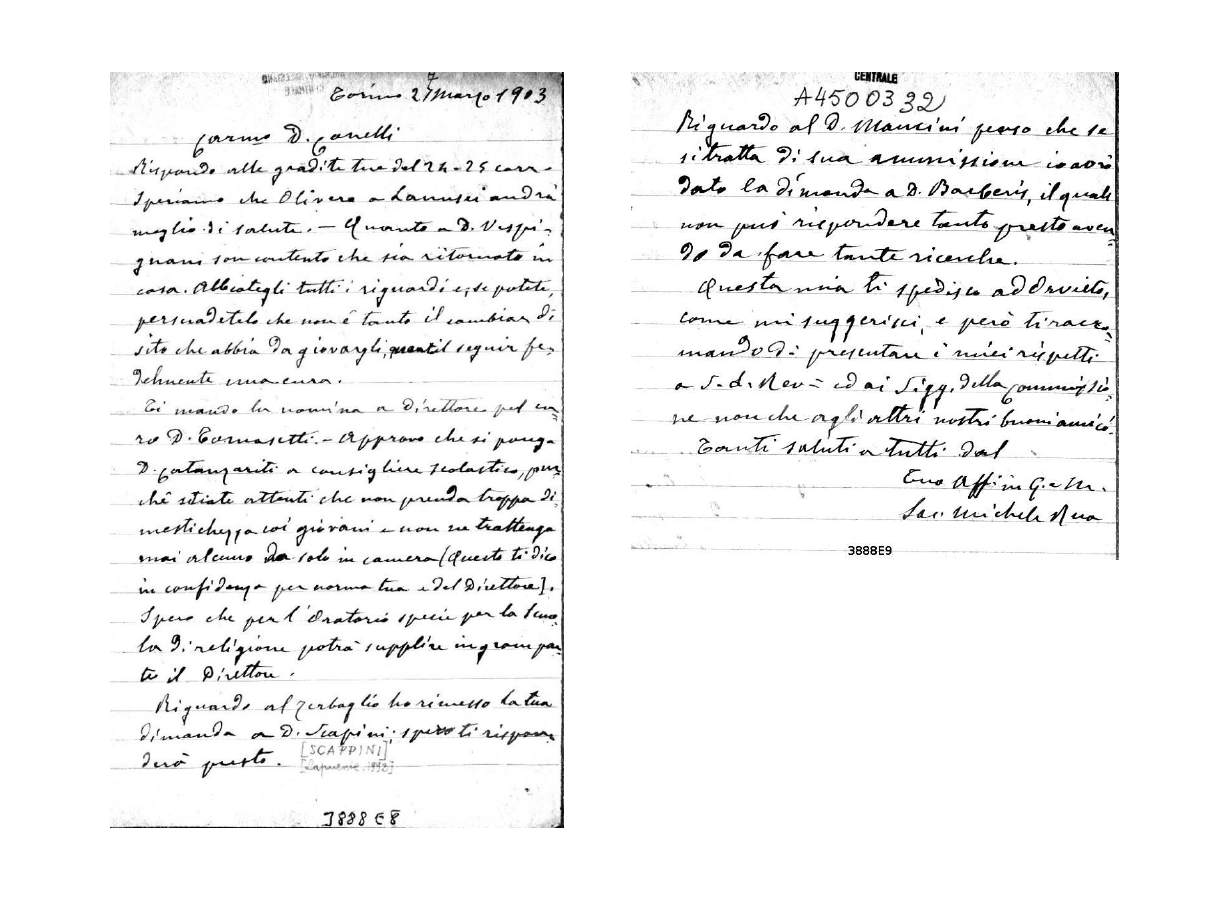 Torino 27 Marzo 1903
Carmo D. Conelli
Rispondo alle gradite tue del 24-25 corr.
Speriamo che Olivero a Lanusei andrà
meglio di salute. — Quanto a D. Vespi-
gnani son contento che sia ritornato in
casa. Abbiategli tutti i riguardi e, se potete,
persuadetelo che non é tanto il cambiar di
sito che abbia da giovargli, quanto il seguir fe-
delmente una cura.
Ti mando la nomina a Direttore pel ca-
ro D. Tomasetti. — Approvo che si ponga
D. Catanzariti a consigliere scolastico, pur-
chê stiate attenti che non prenda troppa di-
mestichezza coi giovani e non ne trattenga
mai alcuno da solo in camera (Questo ti dico
in confidenza per norma tua e del Direttore).
Spero che per l'Oratorio specie per la Scuo-
la di religione potrà supplire in gran par-
te il Direttore.
Riguardo al Zerbaglio ho rimesso la tua
dimanda a D. Scapini; spero ti rispon-
derà presto.
[SCAPPINI]
3888E8
CENTRALE
A4500332
Riguardo al D. Mancini penso che se
si tratta di sua ammissione io avrò
dato la dimanda a D. Barberis, il quale
non può rispondere tanto presto aven-
do da fare tante ricerche.
Questa mia ti spedisco ad Orvieto,
come mi suggerisci, e però ti racco-
mando di presentare i miei rispetti
a S. E. Rev= ed ai Sigg. della Commissio-
ne non che agli altri nostri buoni amici.
Tanti saluti a tutti dal
Tuo Aff in G. e M.
Sac. Michele Rua
3888E9